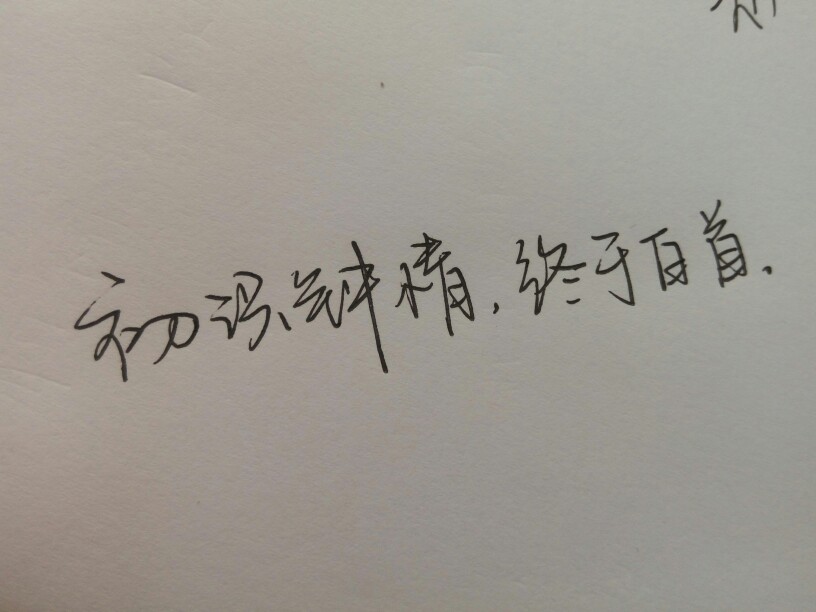 初识钟情,终于白首.